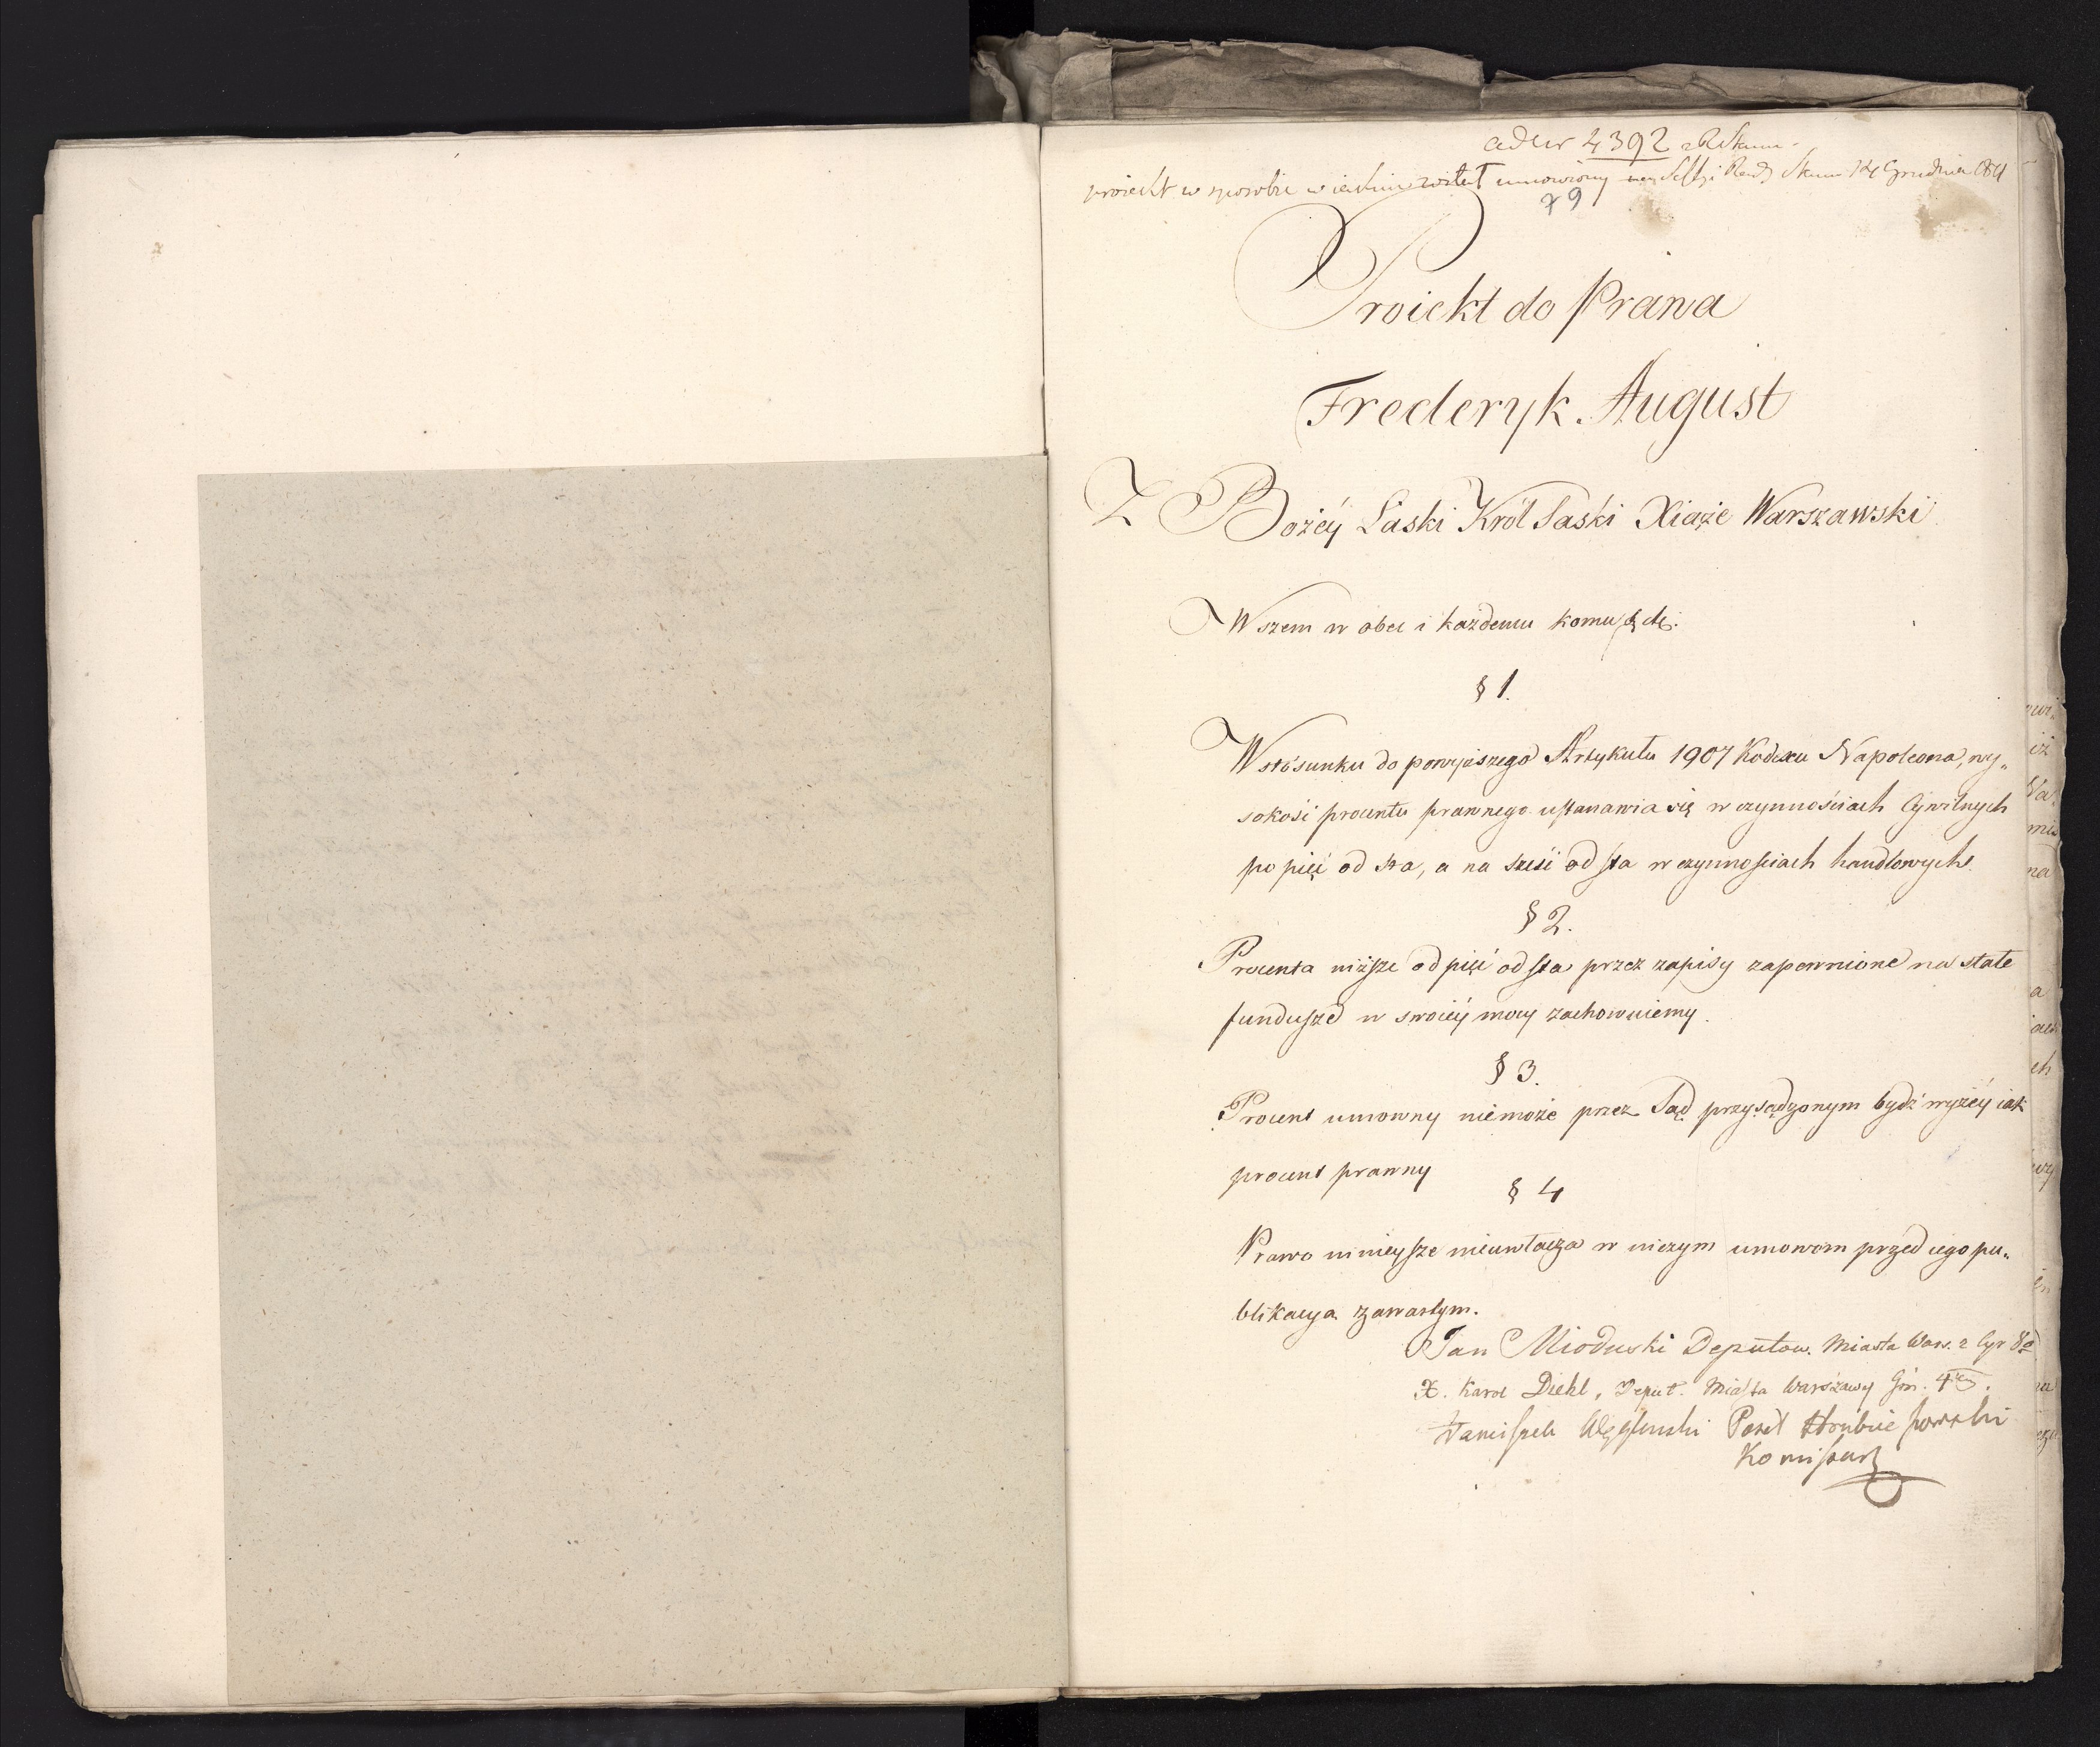 ad Nr 4392 R Skarb.
proiekt w sposobie w iakim został umowiony na Sessyi Rady Stanu 14 Grudnia 1811
79
Proiekt do Prawa
Frederyk August
Z Bożéy Łaski Król Saski Xiąże Warszawski
Wszem w obec i każdemu komu &c &c:
§ 1.
W stósunku do powyższego Artykułu 1907 Kodexu Napoleona, wy„
sokość procentu prawnego ustanawia się w czynnościach Cywilnych
po pięć od sta, a na sześć od sta w czynnościach handlowych.
§ 2.
Procenta niższe od pięć od sta przez zapisy zapewnione na stałe
fundusze w swoiéy mocy zachowuiemy.
§ 3.
Procent umowny niemoże przez Sąd przysądzonym bydź wyżéy iak
procent prawny
§ 4
Prawo ninieysze nieuwłacza w niczym umowom przed iego pu„
blikacya zawartym.
Jan Mioduski Deputow. Miasta Wars. z Cyr 8º
X. Karol Diehl, Deput. Miasta Warszawy Gm. 4tey.
Stanisław Węgleński Poseł Hrubieszowski
Komisarz